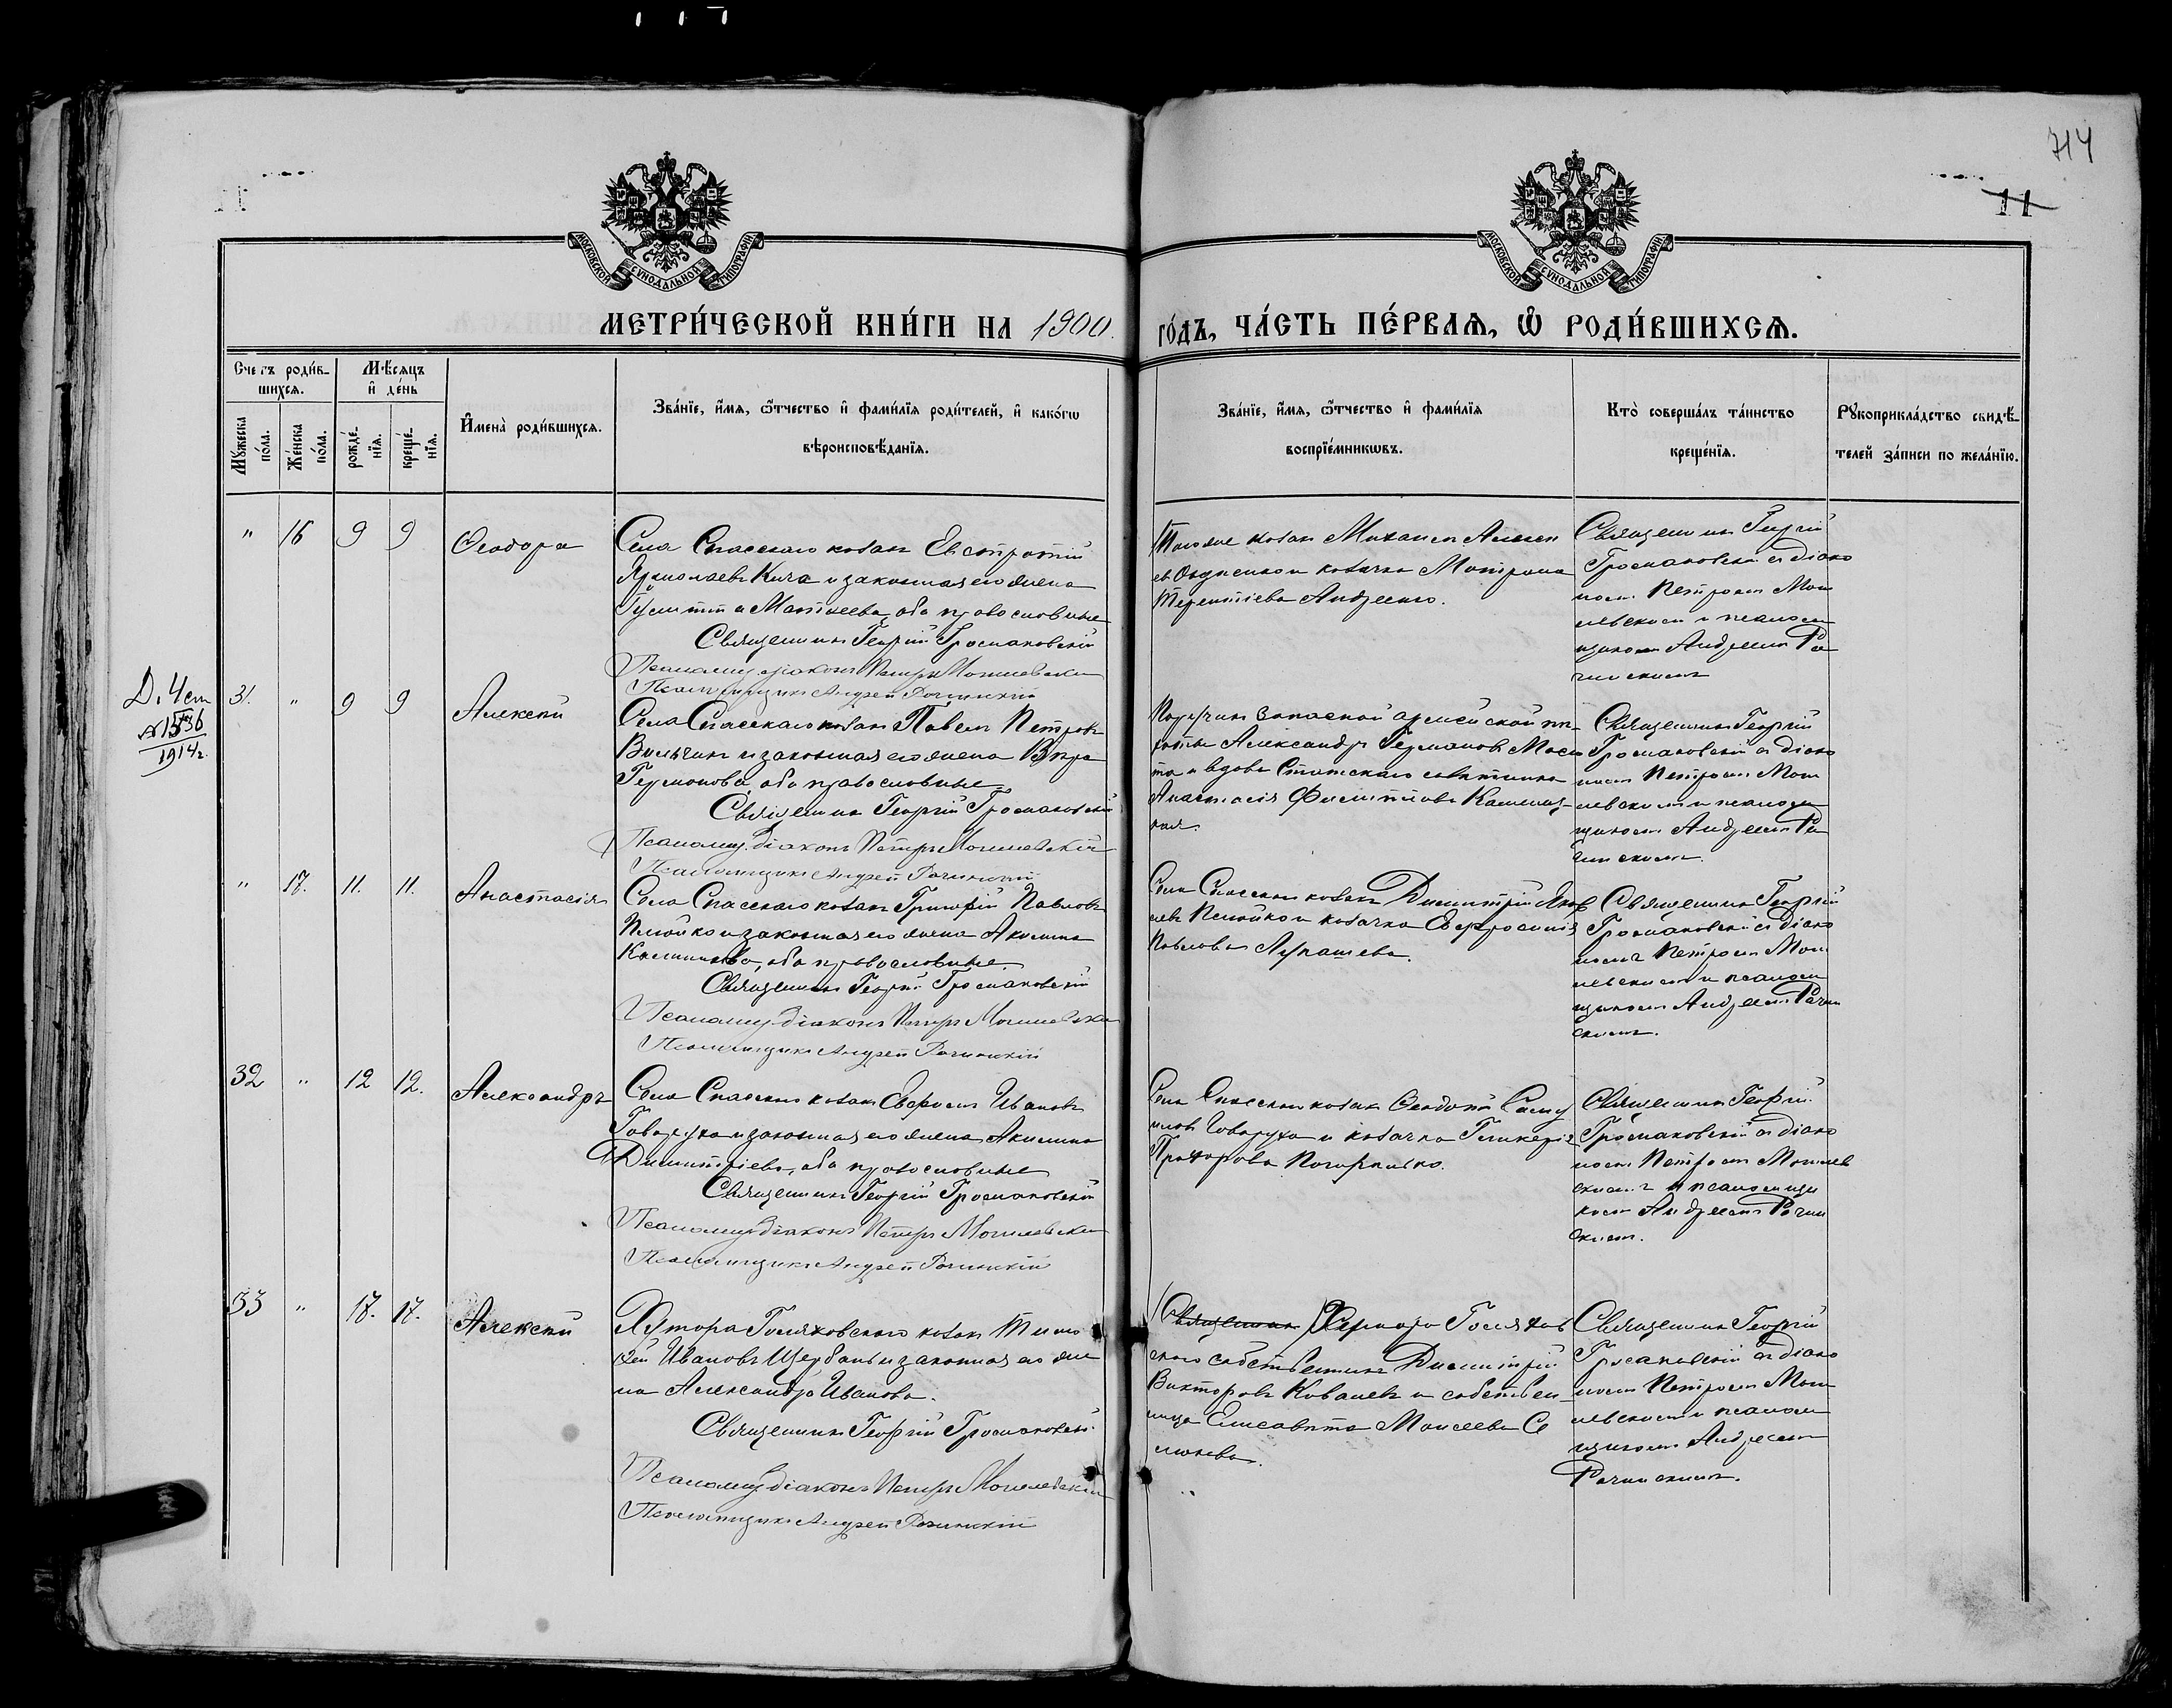 714
11
МОСКОВСКОЙ СѴНОДАЛЬНОЙ ТИПОГРАФІИ
МОСКОВСКОЙ СѴНОДАЛЬНОЙ ТИПОГРАФІИ
МЕТРИ́ЧЕСКОЙ КНИ́ГИ НА 1900. ГО́ДЪ, ЧА́СТЬ ПЕ́РВАЯ, Ѿ РОДИ́ВШИХСЯ.
Счетъ роди́в-
шихся.
Мѣ́сяцъ
и҆ де́нь
Мꙋжеска
по́ла.
Же́нска
по́ла.
рожде́-
нїя.
креще́-
нїя.
И҆мена̀ роди́вшихся.
Зва́нїе, и҆́мя, ѻ҆́тчество и҆ фами́лїя роди́телей, и҆ како́гѡ
вѣроисповѣ́данїя.
Зва́нїе, и҆́мя, ѻ҆́тчество и҆ фами́лїя
воспрїе́мникѡвъ.
Кто̀ соверша́лъ та́инство
креще́нїя.
Рꙋкоприкла́дство свидѣ́-
телей за́писи по жела́нїю.
" 16 9 9 Ѳеодора
Села Спасскаго козакъ Евстратій
Ярмолаевъ Кича и законная его жена
Матвеева, оба православные
Священникъ Георгій Громаковскій
Псаломщ. діаконъ Петръ Могилевскій
Псаломщикъ Андрей Рачинскій
Того же козакъ Михаилъ Алексе
евъ и козачка Матрона
Терентіева Андреенко.
Священникъ Георгій
Громаковскій съ діако
номъ Петромъ Моги
левскимъ и псалом
щикомъ Андреемъ Ра
чинскимъ
Д. Чет
№ 1536
1914 г.
31. " 9 9 Алексѣй
Села Спасскаго козакъ Павелъ Петровъ
и законная его жена Вѣра
Германова, оба православные
Священникъ Георгій Громаковскій
Псаломщ. діаконъ Петръ Могилевскій
Псаломщикъ Андрей Рачинскій
запасной армейской пѣ-
хоты Александръ Германовъ
и вдова Статскаго совѣтника
Анастасія Филиппова
Священникъ Георгій
Громаковскій съ діако
номъ Петромъ Моги
левскимъ и псалом
щикомъ Андреемъ Ра
чинскимъ.
" 17. 11. 11. Анастасія
Села Спасскаго козакъ Григорій Павловъ
и законная его жена Акилина
Калинникова, оба православные.
Священникъ Георгій Громаковскій
Псаломщ. діаконъ Петръ Могилевскій
Псаломщикъ Андрей Рачинскій
Села Спасскаго козакъ Димитрій Яков
левъ и козачка Евфросинія
Павлова Лупашева.
Священникъ Георгій
Громаковскій съ діако
номъ Петромъ Моги
левскимъ и псалом
щикомъ Андреемъ Рачин
скимъ.
32 " 12 12. Александръ
Села Спасскаго козакъ Ефремъ Ивановъ
Говоруха и законная его жена Акилина
Димитріева, оба православные
Священникъ Георгій Громаковскій
Псаломщ. діаконъ Петръ Могилевскій
Псаломщикъ Андрей Рачинскій
Села Спасскаго козакъ Ѳеодотъ Саму
иловъ Говоруха и козачка Гликерія
Прохорова
Священникъ Георгій
Громаковскій съ діако
номъ Петромъ Могилев
скимъ и псаломщи
комъ Андреемъ Рачин
скимъ.
33 " 17. 17. Алексѣй
Хутора Голяховскаго козакъ Тимо
ѳей Ивановъ Щербань и законная его же
на Александра Иванова.
Священникъ Георгій Громаковскій
Псаломщ. діаконъ Петръ Могилевскій
Псаломщикъ Андрей Рачинскій
Священникъ Хутора Голяхов
скаго собственникъ Димитрій
Викторовъ Ковалевъ и собствен
ница Елисавета Моисеева Се
Священникъ Георгій
Громаковскій съ діако
номъ Петромъ Моги
левскимъ и псалом
щикомъ Андреемъ
Рачинскимъ.